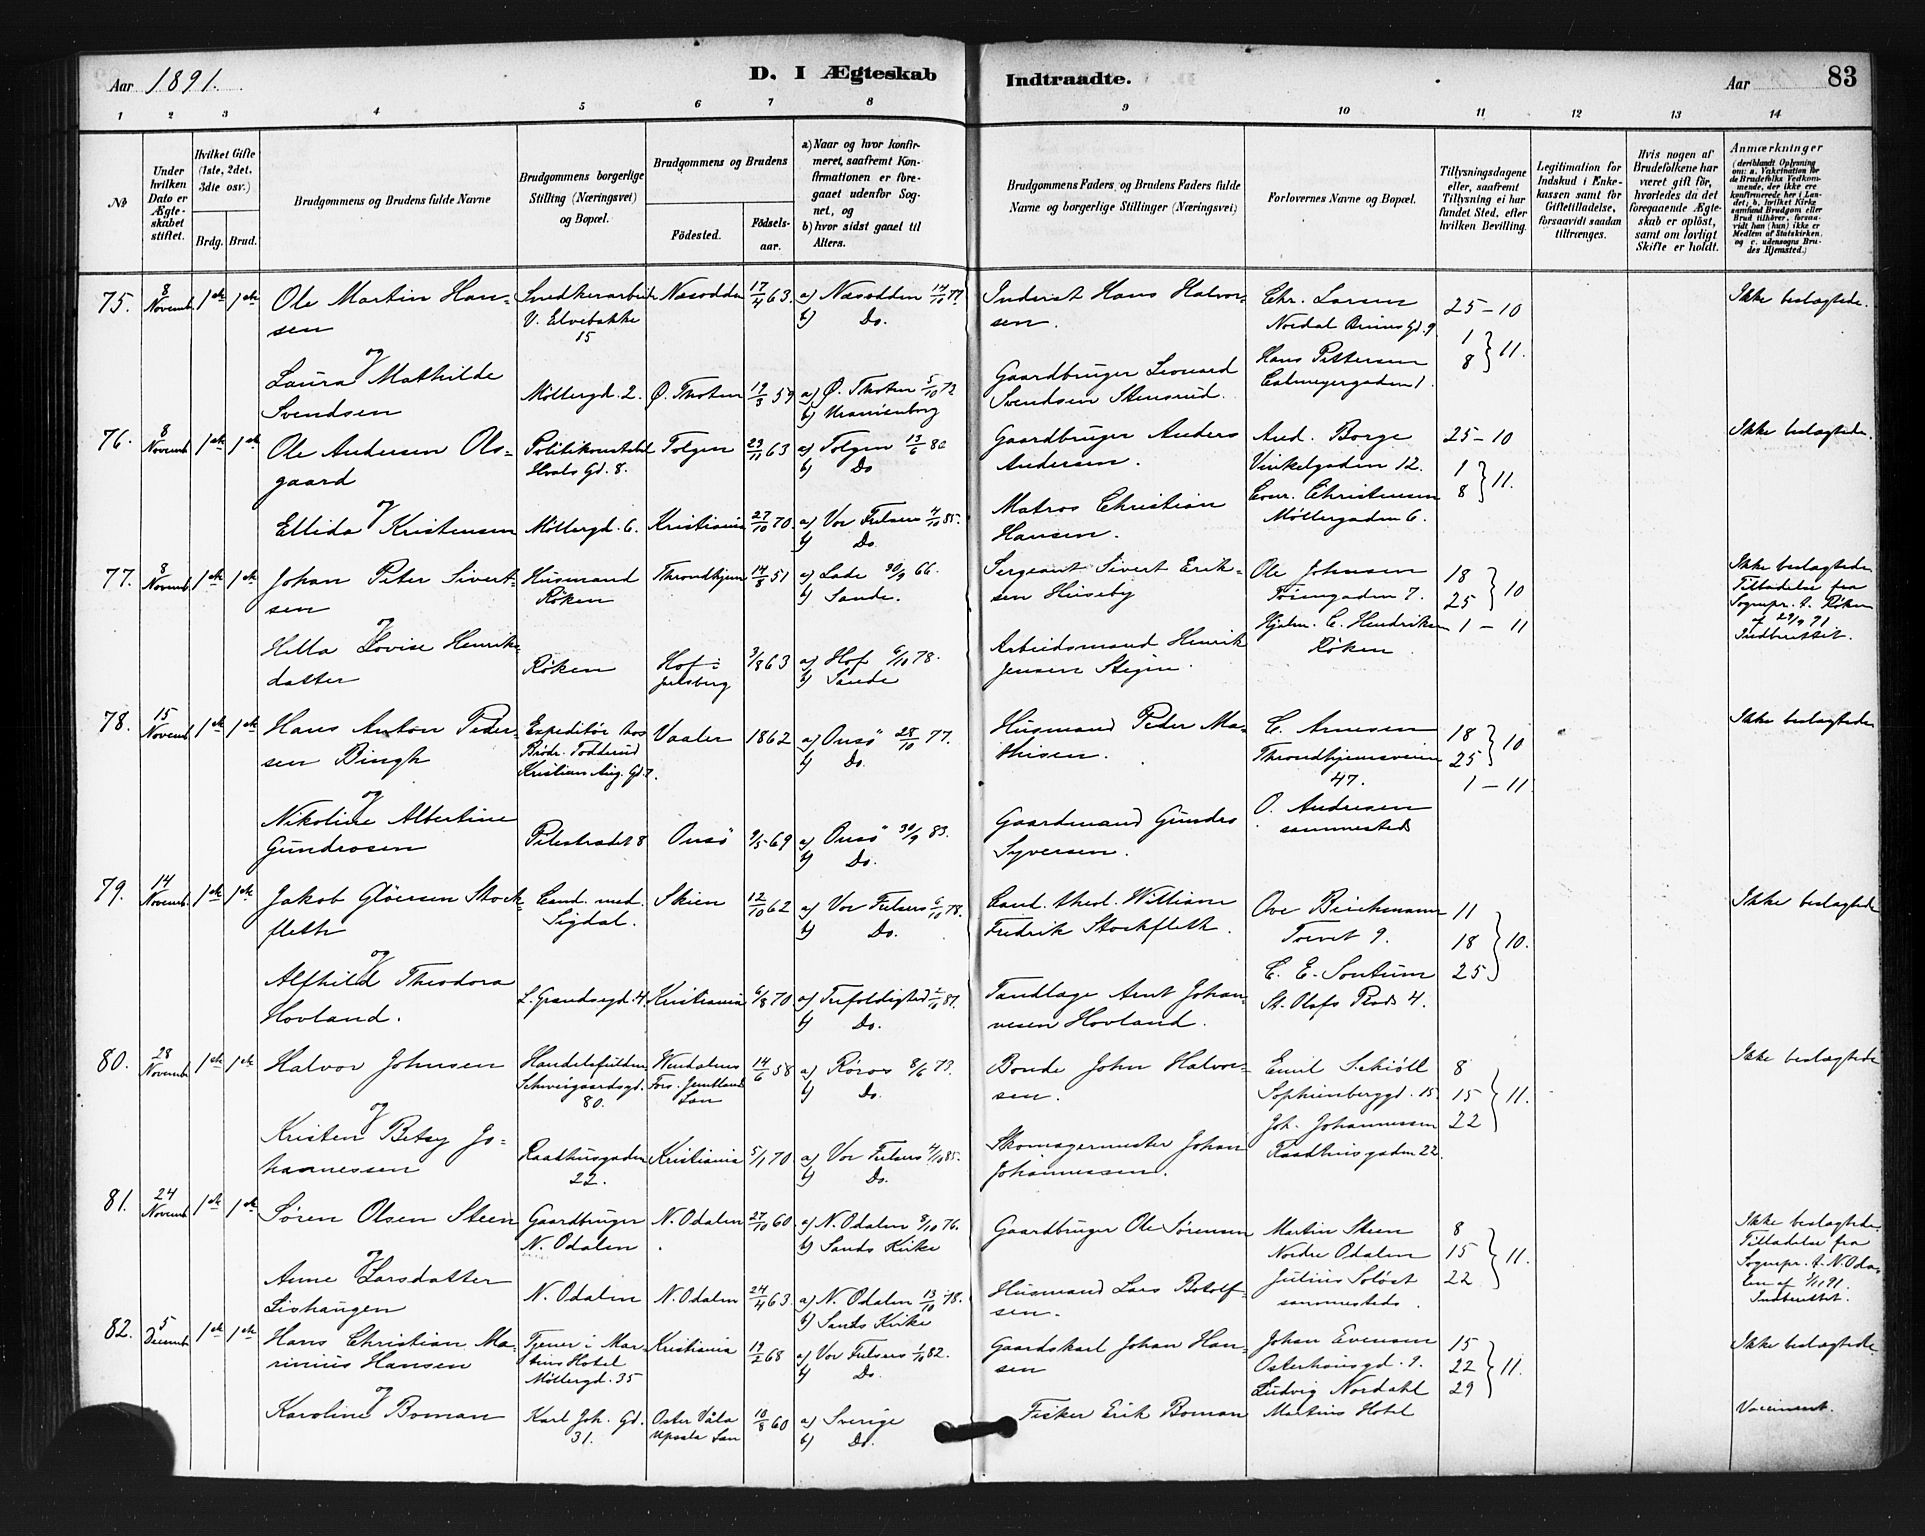 Aar 1891.
D. I Ægteskab Indtraadte.
Aar 83
1 2 3 4 5 6 7 8 9 10 11 12 13 14
No
Under hvilken Dato er Ægteskabet stiftet.
Hvilket Gifte (1ste, 2det, 3die osv.)
Brdg. Brud.
Brudgommens og Brudens fulde Navne
Brudgommens borgerlige Stilling (Næringsvei) og Bopæl.
Brudgommens og Brudens
Födested. Födsels-aar.
a) Naar og hvor konfirmeret, saafremt Konfirmationen er foregaaet udenfor Sognet, og
b) hvor sidst gaaet til Alters.
Brudgommens Faders, og Brudens Faders fulde Navne og borgerlige Stillinger (Næringsvei)
Forlovernes Navne og Bopæl.
Tillysningsdagene eller, saafremt Tillysning ei har fundet Sted, efter hvilken Bevilling.
Legitimation for Indskud i Enkekassen samt for Giftetilladelse, forsaavidt saadan tiltrænges.
Hvis nogen af Brudefolkene har været gift för, hvorledes da det foregaaende Ægteskab er oplöst, samt om lovligt Skifte er holdt.
Anmærkninger (deriblandt Oplysning om: a. Vakcination for de Brudefolks Vedkommende, der ikke ere konfirmerede her i Landet; b. hvilket Kirkesamfund Brudgom eller Brud tilhörer, forsaavidt han (hun) ikke er Medlem af Statskirken, og c. udensogns Brudes Hjemsted.)
75. 8 Novemb. 1ste 1ste Ole Martin Hansen Snedkerarbeid V. Elvebakke 15 Næsodden 17/4 63. a) Næsodden 14/10 77. b) Do. Inderst Hans Halvorsen. Chr. Larsen Nordal Bruns Gd. 9 25-10 Ikke beslægtede.
og
Laura Mathilde Svendsen Møllergd. 2. Ø. Thoten 19/3 59 a) Ø. Thoten 5/10 73 b) Uranienborg Gaardbruger Leonard Svendsen Stensrud. Hans Pettersen Calmeyergaden 1. 1 8 } 11.
76. 8 Novemb. 1ste 1ste Ole Andersen Olsgaard Politikonstabel Hvals Gd. 8. Tolgen 23/11 63 a) Tolgen 13/6 80 b) Do Gaardbruger Anders Andersen. And. Borge Vinkelgaden 12. 25-10 Ikke beslægtede.
og
Ellida Kristensen Møllergd. 6. Kristiania 27/10 70. a) Vor Frelsers 4/10 85. b) Do. Matros Christian Hansen. Conr. Christensen Møllergaden 6. 1 8 } 11.
77. 8 Novemb. 1ste 1ste Johan Peter Sivertsen Husmand Røken Throndhjem 14/8 51 a) Lade 30/9 66. b) Sande. Sergeant Sivert Eriksen Huseby Ole Johnsen Töiengaden 7. 18 25 } 10 Ikke beslægtede Tilladelse fra Sognepr. t. Røken af 29/9 91 Indberettet.
og
Hella Lovise Henriksdatter Røken Hof: Jarlsberg 3/8 63 a) Hof 6/10 78. b) Sande Arbeidsmand Henrik Jensen Hjalm. C. Hendriksen Røken 1 - 11
78. 15 Novemb. 1ste 1ste Hans Anton Pedersen Bingh Expeditør hos Brødr. Kristian Aug. Gd. 7. Vaaler 1862 a) Onsö 28/10 77. b) Do. Husmand Peder Mathisen. C. Arnesen Throndhjemsveien 47. 18 25 } 10 1 - 11 Ikke beslægtede
og
Nikoline Albertine Gundrosen Pilestrædet 8 Onsö 9/5 69 a) Onsö 30/9 83. b) Do. Gaardmand Gundro Syversen. O. Andresen sammesteds
79. 14 Novemb. 1ste 1ste Jakob Glöersen Stockfleth Cand. med. Sigdal. Skien 12/10 62 a) Vor Frelsers 6/10 78. b) Do. Cand. theol. William Fredrik Stockfleth. Ove Birchmann Torvet 9. 11 18 25 } 10. Ikke beslægtede
og
Alfhild Theodora Hovland. L. Grændsegd. 4. Kristiania 6/8 70 a) Trefoldighed 2/10 87. b) Do. Tandlæge Arnt Johannesen Hovland. C. E. Sontum St. Olafs Plads 4.
80. 28 Novemb. 1ste 1ste Halvor Johnsen Handelsfuldm. Schweigaardsgd. 80. Fors. Jemtland Län 14/6 58 a) Röros 8/6 73. b) Do. Bonde John Halvorsen. Emil Schiöll Sophienberggd. 15. 8 15 22 } 11. Ikke beslægtede
og
Kristen Betsy Johannessen Raadhusgaden 22. Kristiania 5/1 70 a) Vor Frelsers 4/10 85. b) Do. Skomagermester Johan Johannessen. Joh. Johannessen Raadhusgaden 22.
81. 24 Novemb. 1ste 1ste Søren Olsen Steen Gaardbruger N. Odalen N. Odalen 27/10 60 a) N. Odalen 8/10 76. b) Sands Kirke Gaardbruger Ole Sörensen Martin Steen Nordre Odalen 8 15 22 } 11. Ikke beslægtede. Tilladelse fra Sognepr. t. N. Odalen af 3/11 91. Indberettet.
og
Anne Larsdatter Lishaugen N. Odalen N. Odalen 24/4 63 a) N. Odalen 13/10 78. b) Sands Kirke Husmand Lars Botolfsen. Julius Soløst sammesteds.
82. 5 Decemb. 1ste 1ste Hans Christian Marinius Hansen Tjener i Martins Hotel Møllergd. 35 Kristiania 19/2 68 a) Vor Frelsers 1/10 82. b) Do. Gaardskarl Johan Hansen Johan Evensen Osterhausgd. 9. 15 22 29 } 11. Ikke beslægtede
og
Karoline Boman Karl Joh. Gd. 31. Oster Våla Upsala Län 10/8 60 a) Sverige b) Do. Fisker Erik Boman Ludvig Nordahl Martins Hotel Vaccineret.